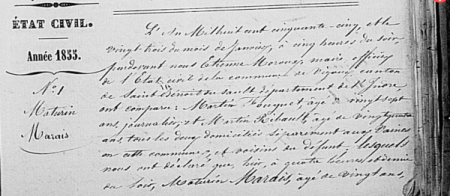 ÉTAT CIVIL.
Année 1855.
N.° 1
Maturin
Marais
L'An Mil huit cent cinquante-cinq, et le
vingt trois du mois de janvier, à cinq heures du soir,
pardevant nous Etienne Moreau, maire, officier
de l'Etat civil de la commune de Vigoux canton
de Saint Benoit du Sault département de l'Indre
ont comparu: Martin Fouquet agé de vingt sept
ans, journalier, et Martin Ribault, agé de
ans, tous les deux domiciliés séparément aux
en cette commune, et voisins du défunt, lesquels
nous ont déclaré que, hier, à quatre heures
du soir, Maturin Marais, agé de vingt ans,